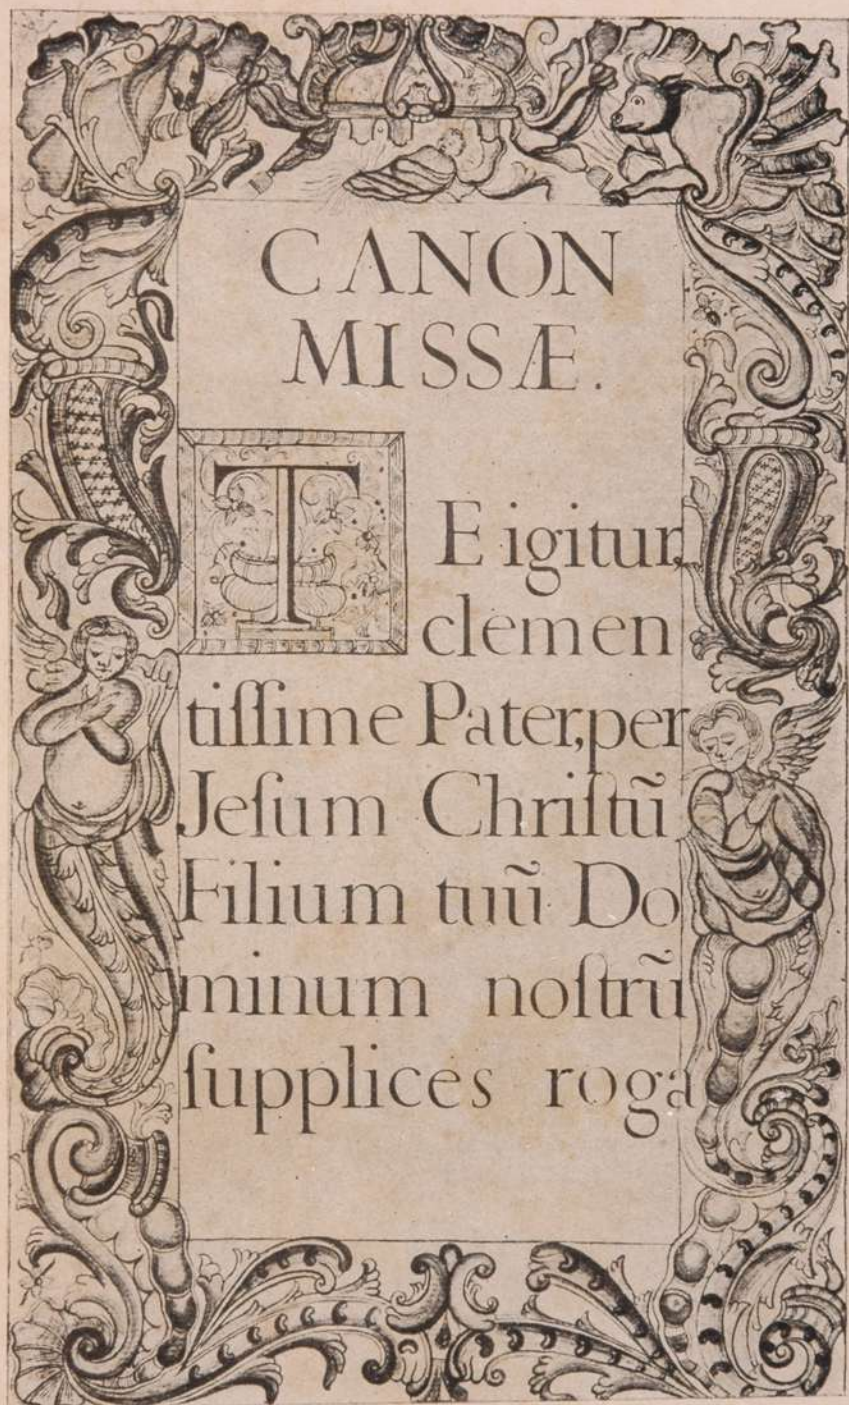 CANON
MISSÆ.
TE igitur,
clemen
tiſſime Pater, per
Jeſum Chriſtũ
Filium tuũ Do
minum noſtrũ
ſupplices roga